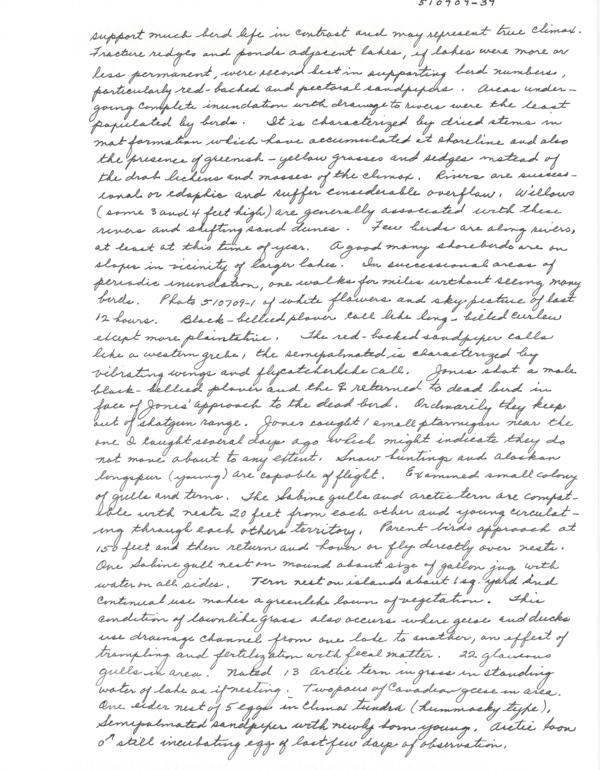 510909-39
support much bird life in contrast and may represent true climax.
Fracture redges and ponds adjacent lakes, if lakes were more or
less permanent, were second best in supporting bird numbers,
particularly red-backed and pectoral sandpipers. Areas under-
going complete inundation with drainage to rivers were the least
populated by birds. It is characterized by dried stems in
mat formation which have accumulated at shoreline and also
the presence of greenish-yellow grasses and sedges instead of
the drab lichens and mosses of the climax. Rivers are success-
ional or edaphic and suffer considerable overflow. Willows
(some 3 and 4 feet high) are generally associated with these
rivers and shifting sand dunes. Few birds are along rivers,
at least at this time of year. A good many shorebirds are on
slopes in vicinity of larger lakes. In successional areas of
periodic inundation, one walks for miles without seeing many
birds. Photo 510709-1 of white flowers and sky picture of last
12 hours. Black-bellied plover call like long-billed curlew
except more plaintative. The red-backed sandpiper calls
like a western grebe, the semipalmated is characterized by
vibrating wings and flycatcherlike call. Jones shot a male
black-bellied plover and the ♀ returned to dead bird in
face of Jones' approach to the dead bird. Ordinarily they keep
out of shotgun range. Jones caught 1 small ptarmigan near the
one I caught several days ago which might indicate they do
not move about to any extent. Snow buntings and Alaskan
longspur (young) are capable of flight. Examined small colony
of gulls and terns. The Sabine gulls and arctic tern are compat-
ible with nests 20 feet from each other and young circulat-
ing through each others territory. Parent birds approach at
150 feet and then return and hover or fly directly over nests.
One Sabine gull nest on mound about size of gallon jug with
water on all sides. Tern nest on islands about 1 sq. yard and
continual use makes a greenlike lawn of vegetation. This
condition of lawnlike grass also occurs where geese and ducks
use drainage channel from one lake to another, an effect of
trampling and fertilization with fecal matter. 22 glaucous
gulls in area. Noted 13 Arctic tern in grass in standing
water of lake as if nesting. Two pairs of Canadian geese in area.
One eider nest of 5 eggs in climax tundra (hummocky type).
Semipalmated sandpiper with newly born young. Arctic loon
♂ still incubating egg of last few days of observation.